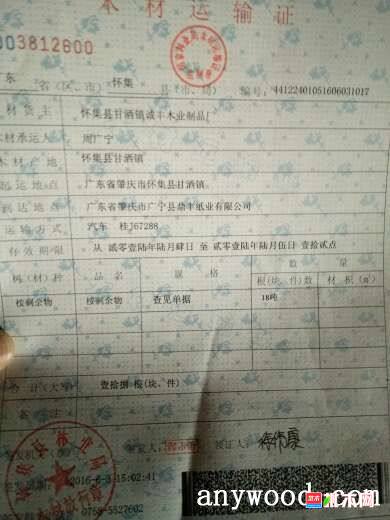 木材运输证
003812800
东 省(区、市) 怀集 县(市、局) 编号: 44122401051606031017
材货主 怀集县甘洒镇诚丰木业制品厂
木材承运人 周广宁
木材产地 怀集县甘洒镇
起运地点 广东省肇庆市怀集县甘洒镇
到达地点 广东省肇庆市广宁县鼎丰纸业有限公司
运输方式 汽车 桂J67288
有效期限 从 贰零壹陆年陆月肆日 至 贰零壹陆年陆月伍日 壹拾贰点
树(材)种 品名 规格 数量
根(块、件)数 材积(m³)
桉剩余物 桉剩余物 查见单据 18吨
合计(大写) 壹拾捌 根(块、件)
备注
签发机关
签发人: 签证人:
2016-6-3 15:02:41
0758-5527602
anywood.com